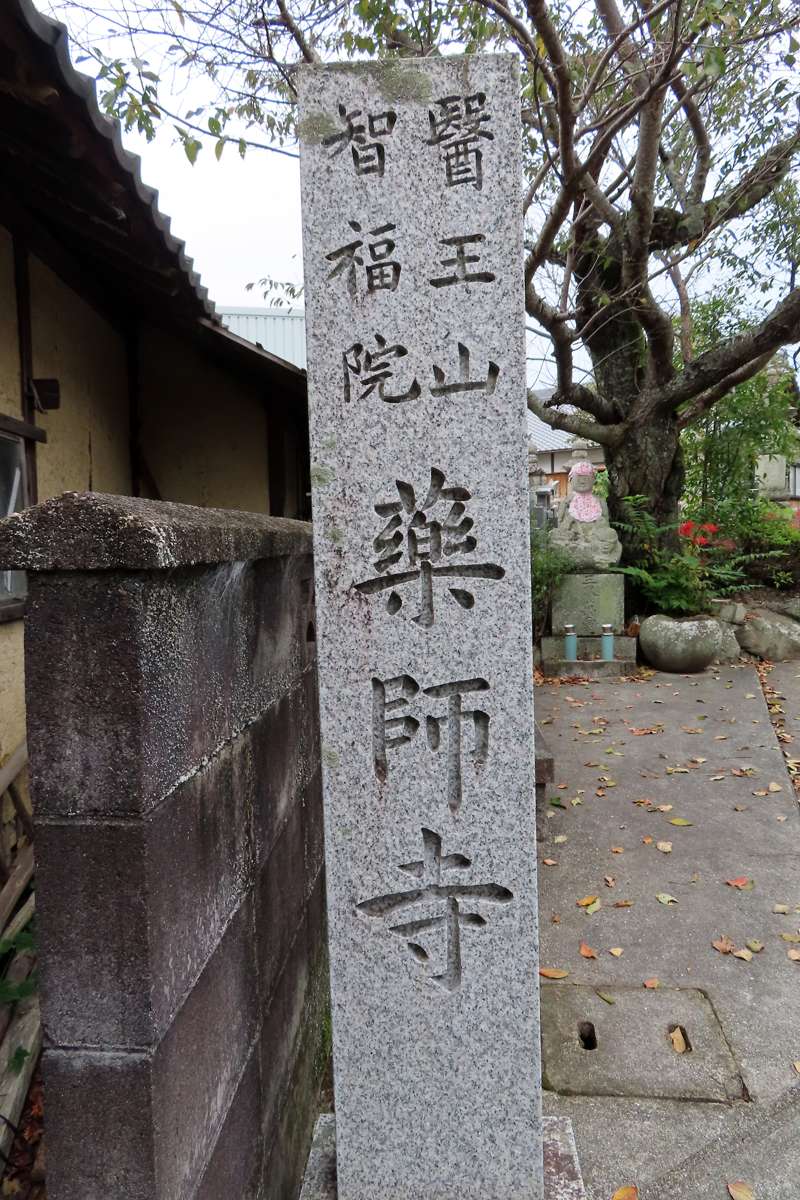 醫王山
智福院
藥師寺